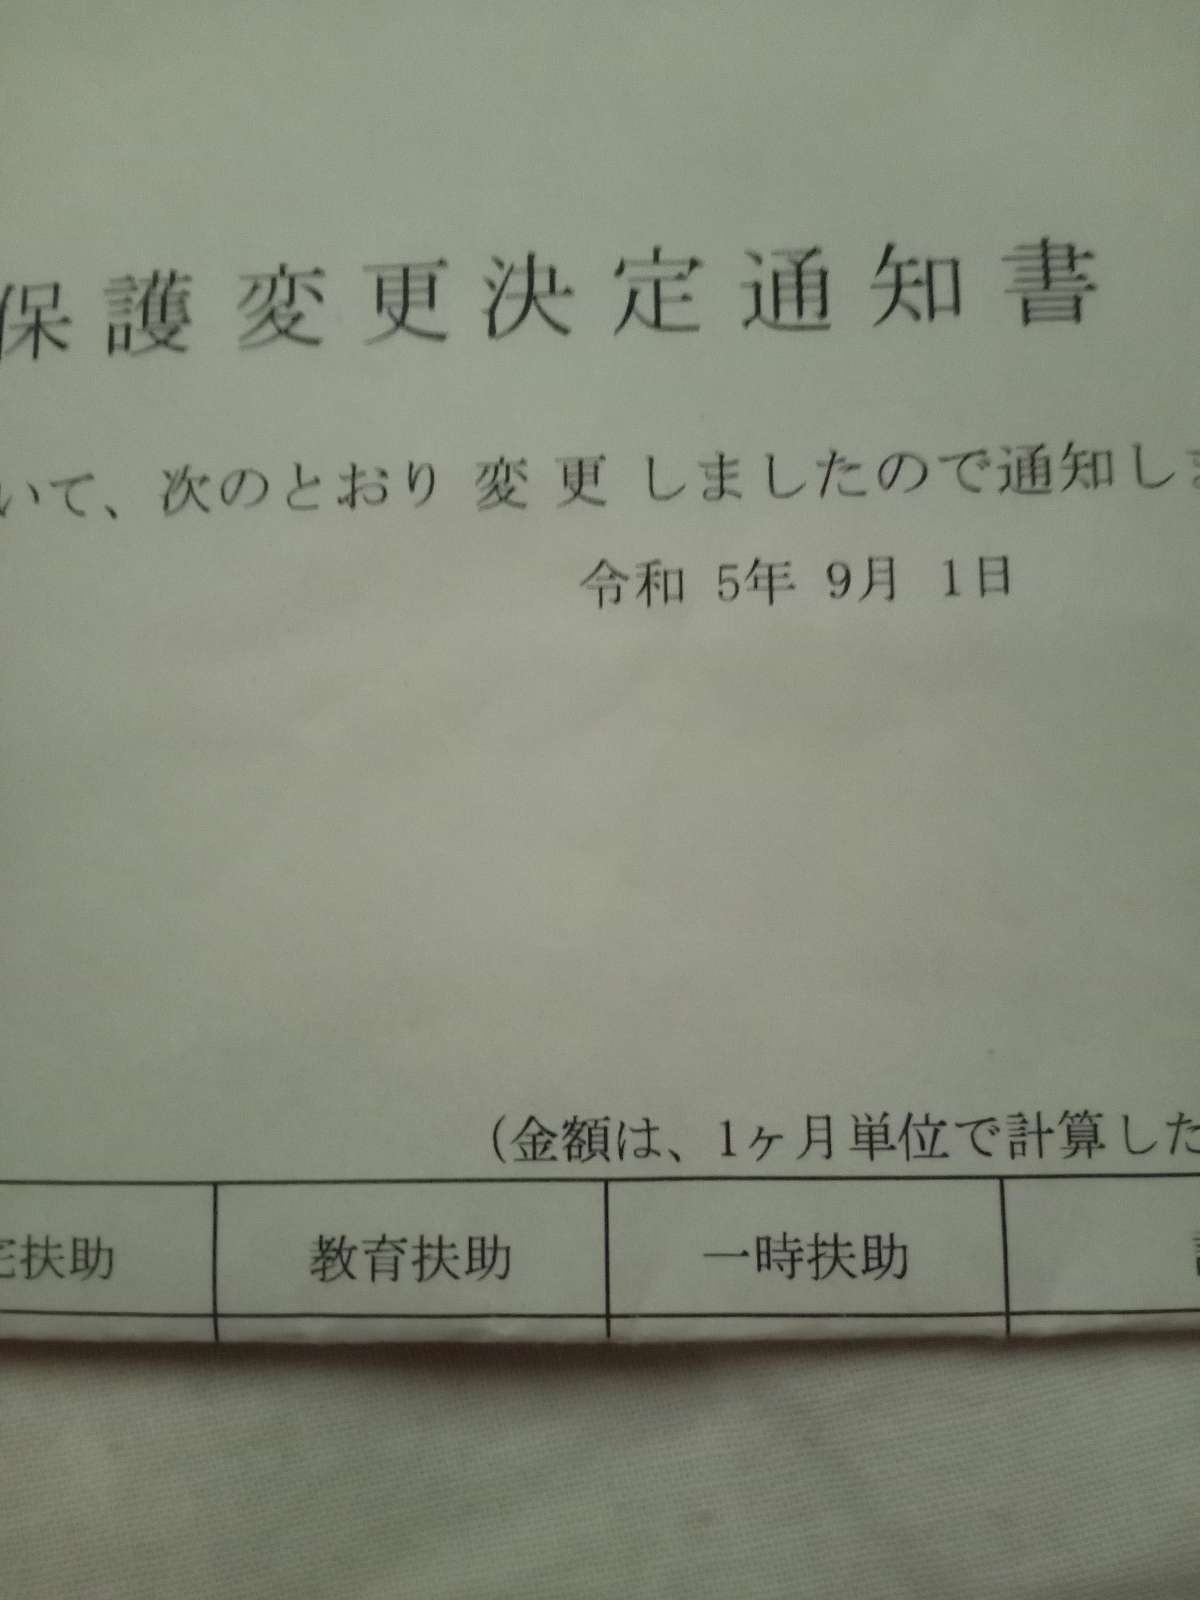 保護変更決定通知書
いて、次のとおり 変更 しましたので通知しま
令和 5年 9月 1日
(金額は、1ヶ月単位で計算した
宅扶助 教育扶助 一時扶助